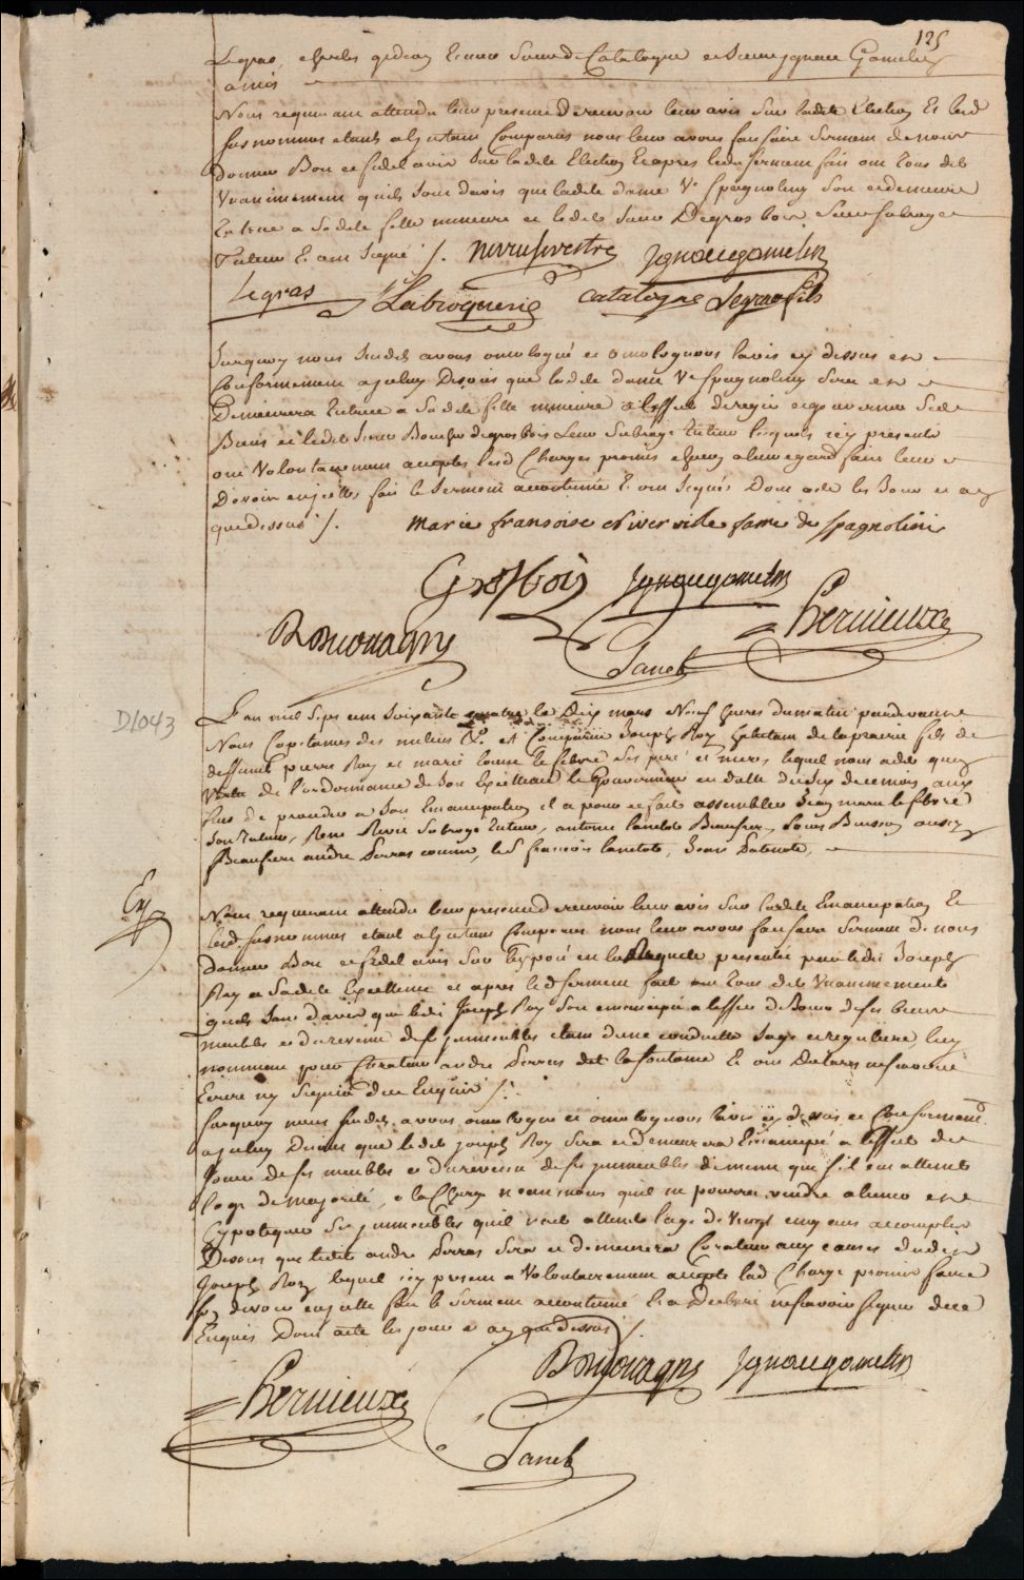 125
Legras, charles gedeon Ecuier Sieur de Catalogne et Sieur Ignace Gamelin
amis
Nous requerant attendu leur presence de recevoir leur avis Sur ladite Election Et lesd
susnommés étants a l'instant Comparus nous leur avons fait faire Serment de nous
donner Bon et fidel avis Sur ladite Election Et apres ledit serment fait ont tous dits
Unanimement quils sont davis que ladite dame Ve Spagnoliny Soit et demeure
Tutrice a Sadite fille mineure et ledit Sieur Degrosbois Son Subrogé
Tuteur Et ont Signé /. nivruserestre Ignace gamelin
Legras Labroquerie Catalogne Legras fils
Surquoy nous susdits avons omologué et omologuons lavis cy dessus et
Conformement a yceluy Disons que ladite dame Ve Spagnoliny Sera et
Demeurera Tutrice a Sadite fille mineure a l'effet de regir et gouverner Ses
Biens et ledit Sieur Boucher degrosbois Son Subrogé tuteur lesquels icy presents
ont Volontairement accepté lesd Charges promis chacun a leur egard faire leur
Devoir en icelles fait le Serment accoutumé Et ont Signés Dont acte les Jour et an
que dessus /. Marie fransoise niverville fame de spagnolini
Grosbois Ignace gamelin
R Decouagne Hervieux
Panet
D1043
L'an mil Sept cent Soixante quatre le Dix mars Neuf heures du matin pardevant
Nous Capitaines des milices &c. est Comparu Joseph Roy habitant de laprairie fils de
deffunts pierre Roy et marie louise lefebvre Ses pere et mere, lequel nous a dit quen
Vertu de l'ordonnance de Son Excellence le Gouverneur en datte du dix decembre aux
fins de proceder a Son Emancipation il a pour cet effet assemblés Jean marie lefebvre
Son tuteur, Rene Rivet Subrogé tuteur, antoine lanctot Beaufrere, Louis Buisson aussy
Beaufrere andre Serras cousin, les francois lanctots, Jean Patenote,
En
Nous requerant attendu leur presence de recevoir leur avis Sur ladite Emancipation Et
lesd. susnommés étant a l'instant Comparus nous leur avons fait faire Serment de nous
donner Bon et fidel avis Sur l'exposé en la Requete presentée par ledit Joseph
Roy a Sadite Excellence et apres led serment fait ont tous dits Unanimement
quils Sont d'avis que ledit Joseph Roy Soit emancipé a l'effet de Jouir de ses biens
meubles et du revenu de ses immeubles etant d'une conduitte Sage et reguliere luy
nommant pour Curateur andre Serras dit lafontaine Et ont Declarés ne savoir
Ecrire ny Signer de ce Enquis /.
Surquoy nous susdits avons omologué et omologuons lavis cy dessus et Conformement
a yceluy Disons que ledit Joseph Roy Sera et demeurera Emancipé a l'effet de
Jouir de ses meubles et du revenu de ses immeubles de meme que s'il eut atteint
l'age de majorité, a la Charge neanmoins quil ne pourra vendre aliener et
hypotequer Ses immeubles quil n'ait atteint l'age de Vingt cinq ans accomplis
Disons que ledit andre Serras Sera et demeurera Curateur aux causes dudit
Joseph Roy lequel icy present a Volontairement accepté lad Charge promis faire
son devoir en icelle fait le Serment accoutumé Et a Declaré ne savoir signer de ce
Enquis Dont acte les jour et an que dessus /.
R Decouagne Ignace gamelin
Hervieux
Panet